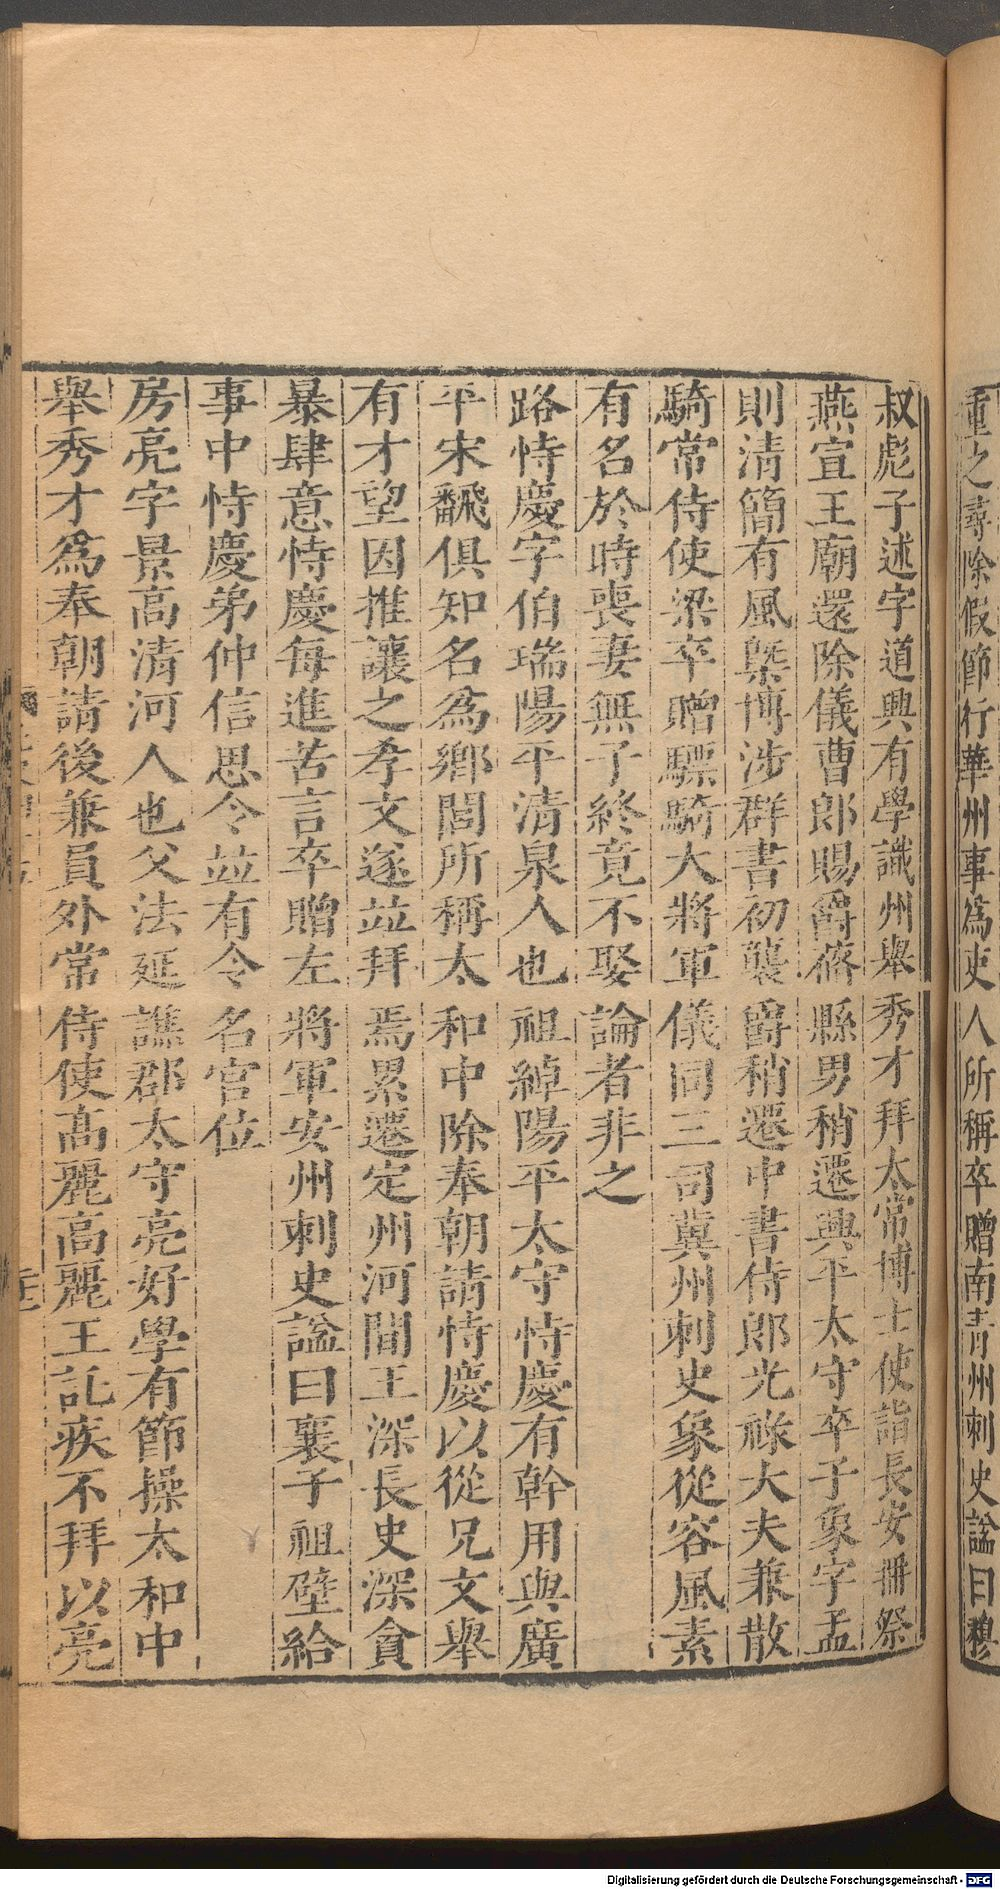 重之尋除假節行華州事為吏人所稱卒贈南青州刺史謚曰穆
叔彪子述字道興有學識州舉秀才拜太常博士使詣長安冊祭
燕宣王廟還除儀曹郎賜爵蓨縣男稍遷興平太守卒子象字孟
則清簡有風槩博涉群書初襲爵稍遷中書侍郎光祿大夫兼散
騎常侍使梁卒贈驃騎大將軍儀同三司冀州刺史象從容風素
有名於時喪妻無子終竟不娶論者非之
路恃慶字伯瑞陽平清泉人也祖綽陽平太守恃慶有幹用與廣
平宋飜俱知名為鄉閭所稱太和中除奉朝請恃慶以從兄文舉
有才望因推讓之孝文遂並拜焉累遷定州河間王深長史深貪
暴肆意恃慶每進苦言卒贈左將軍安州刺史謚曰襄子祖璧給
事中恃慶弟仲信思令並有令名官位
房亮字景高清河人也父法延譙郡太守亮好學有節操太和中
舉秀才為奉朝請後兼員外常侍使高麗高麗王託疾不拜以亮
Digitalisierung gefördert durch die Deutsche Forschungsgemeinschaft - DFG